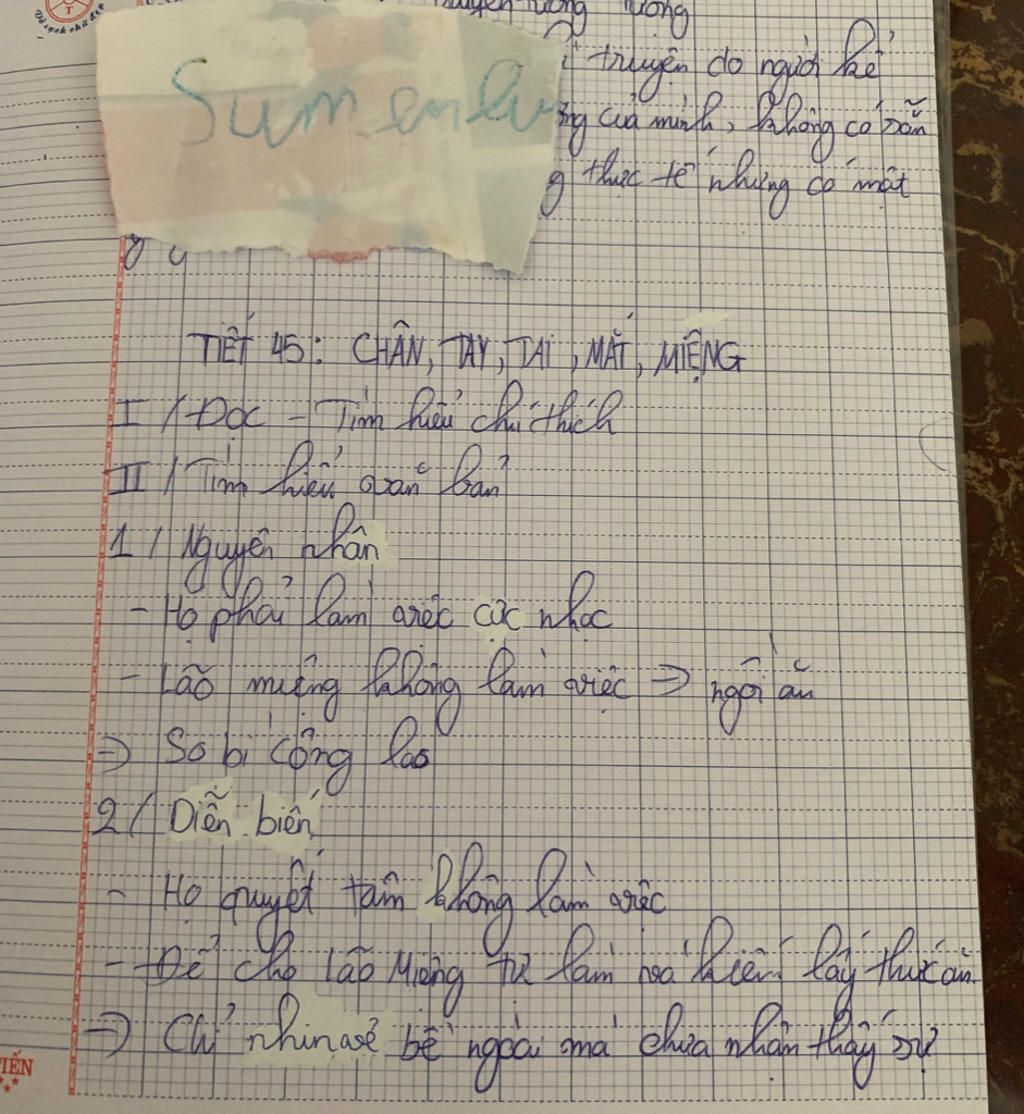 tưởng tượng
truyện do người kể
của mình, không có sẵn
Sumenlu
thực tế nhưng có một
ý
TIẾT 45: CHÂN, TAY, TAI, MẮT, MIỆNG
I / Đọc - Tìm hiểu chú thích
II / Tìm hiểu văn bản
1 / Nguyên nhân
- Họ phải làm việc cực nhọc
- Lão miệng không làm việc => ngồi ăn
=> So bì công lao
2 / Diễn biến
- Họ quyết tâm không làm việc
- Để cho Lão Miệng tự làm tìm kiếm lấy thức ăn
=> Chỉ nhìn vẻ bề ngoài mà chưa nhận thấy sự
TIẾN